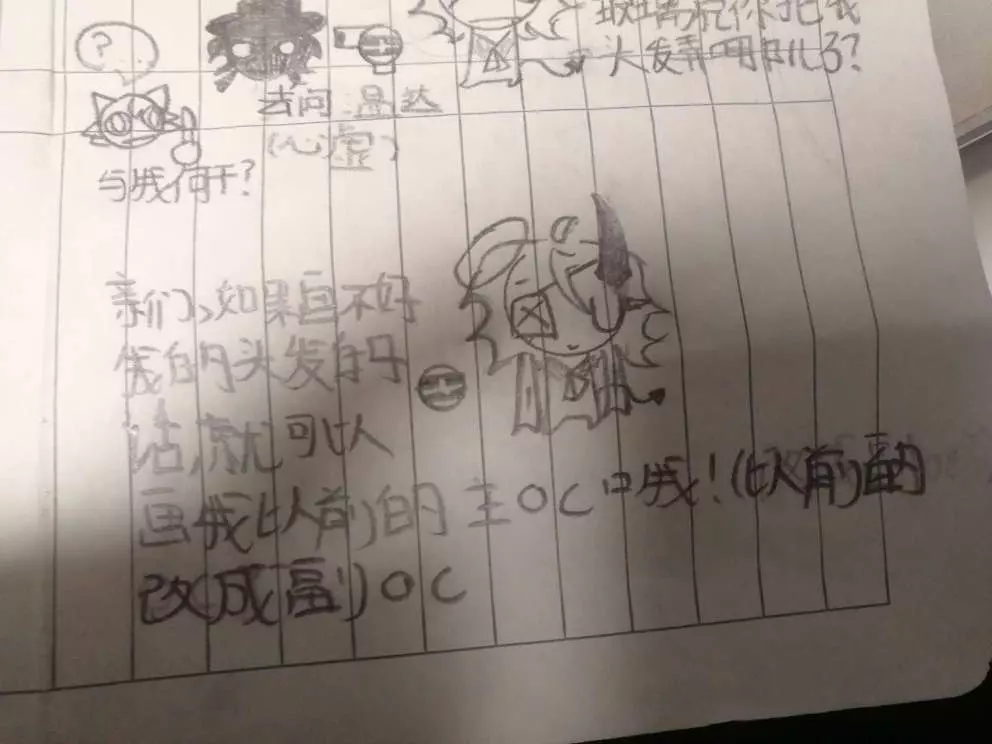 玻璃说你把我
头发弄哪儿了?
?
去问温达
(心虚)
与我何干?
亲们,如果画不好
我的头发的
话,就可以
画我以前的主OC哦!(以前)的
改成副OC